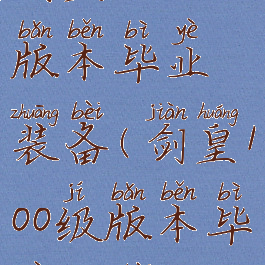 bǎn běn bì yè
版本毕业
zhuāng bèi jiàn huáng
装备(剑皇1
jí bǎn běn bì
00级版本毕